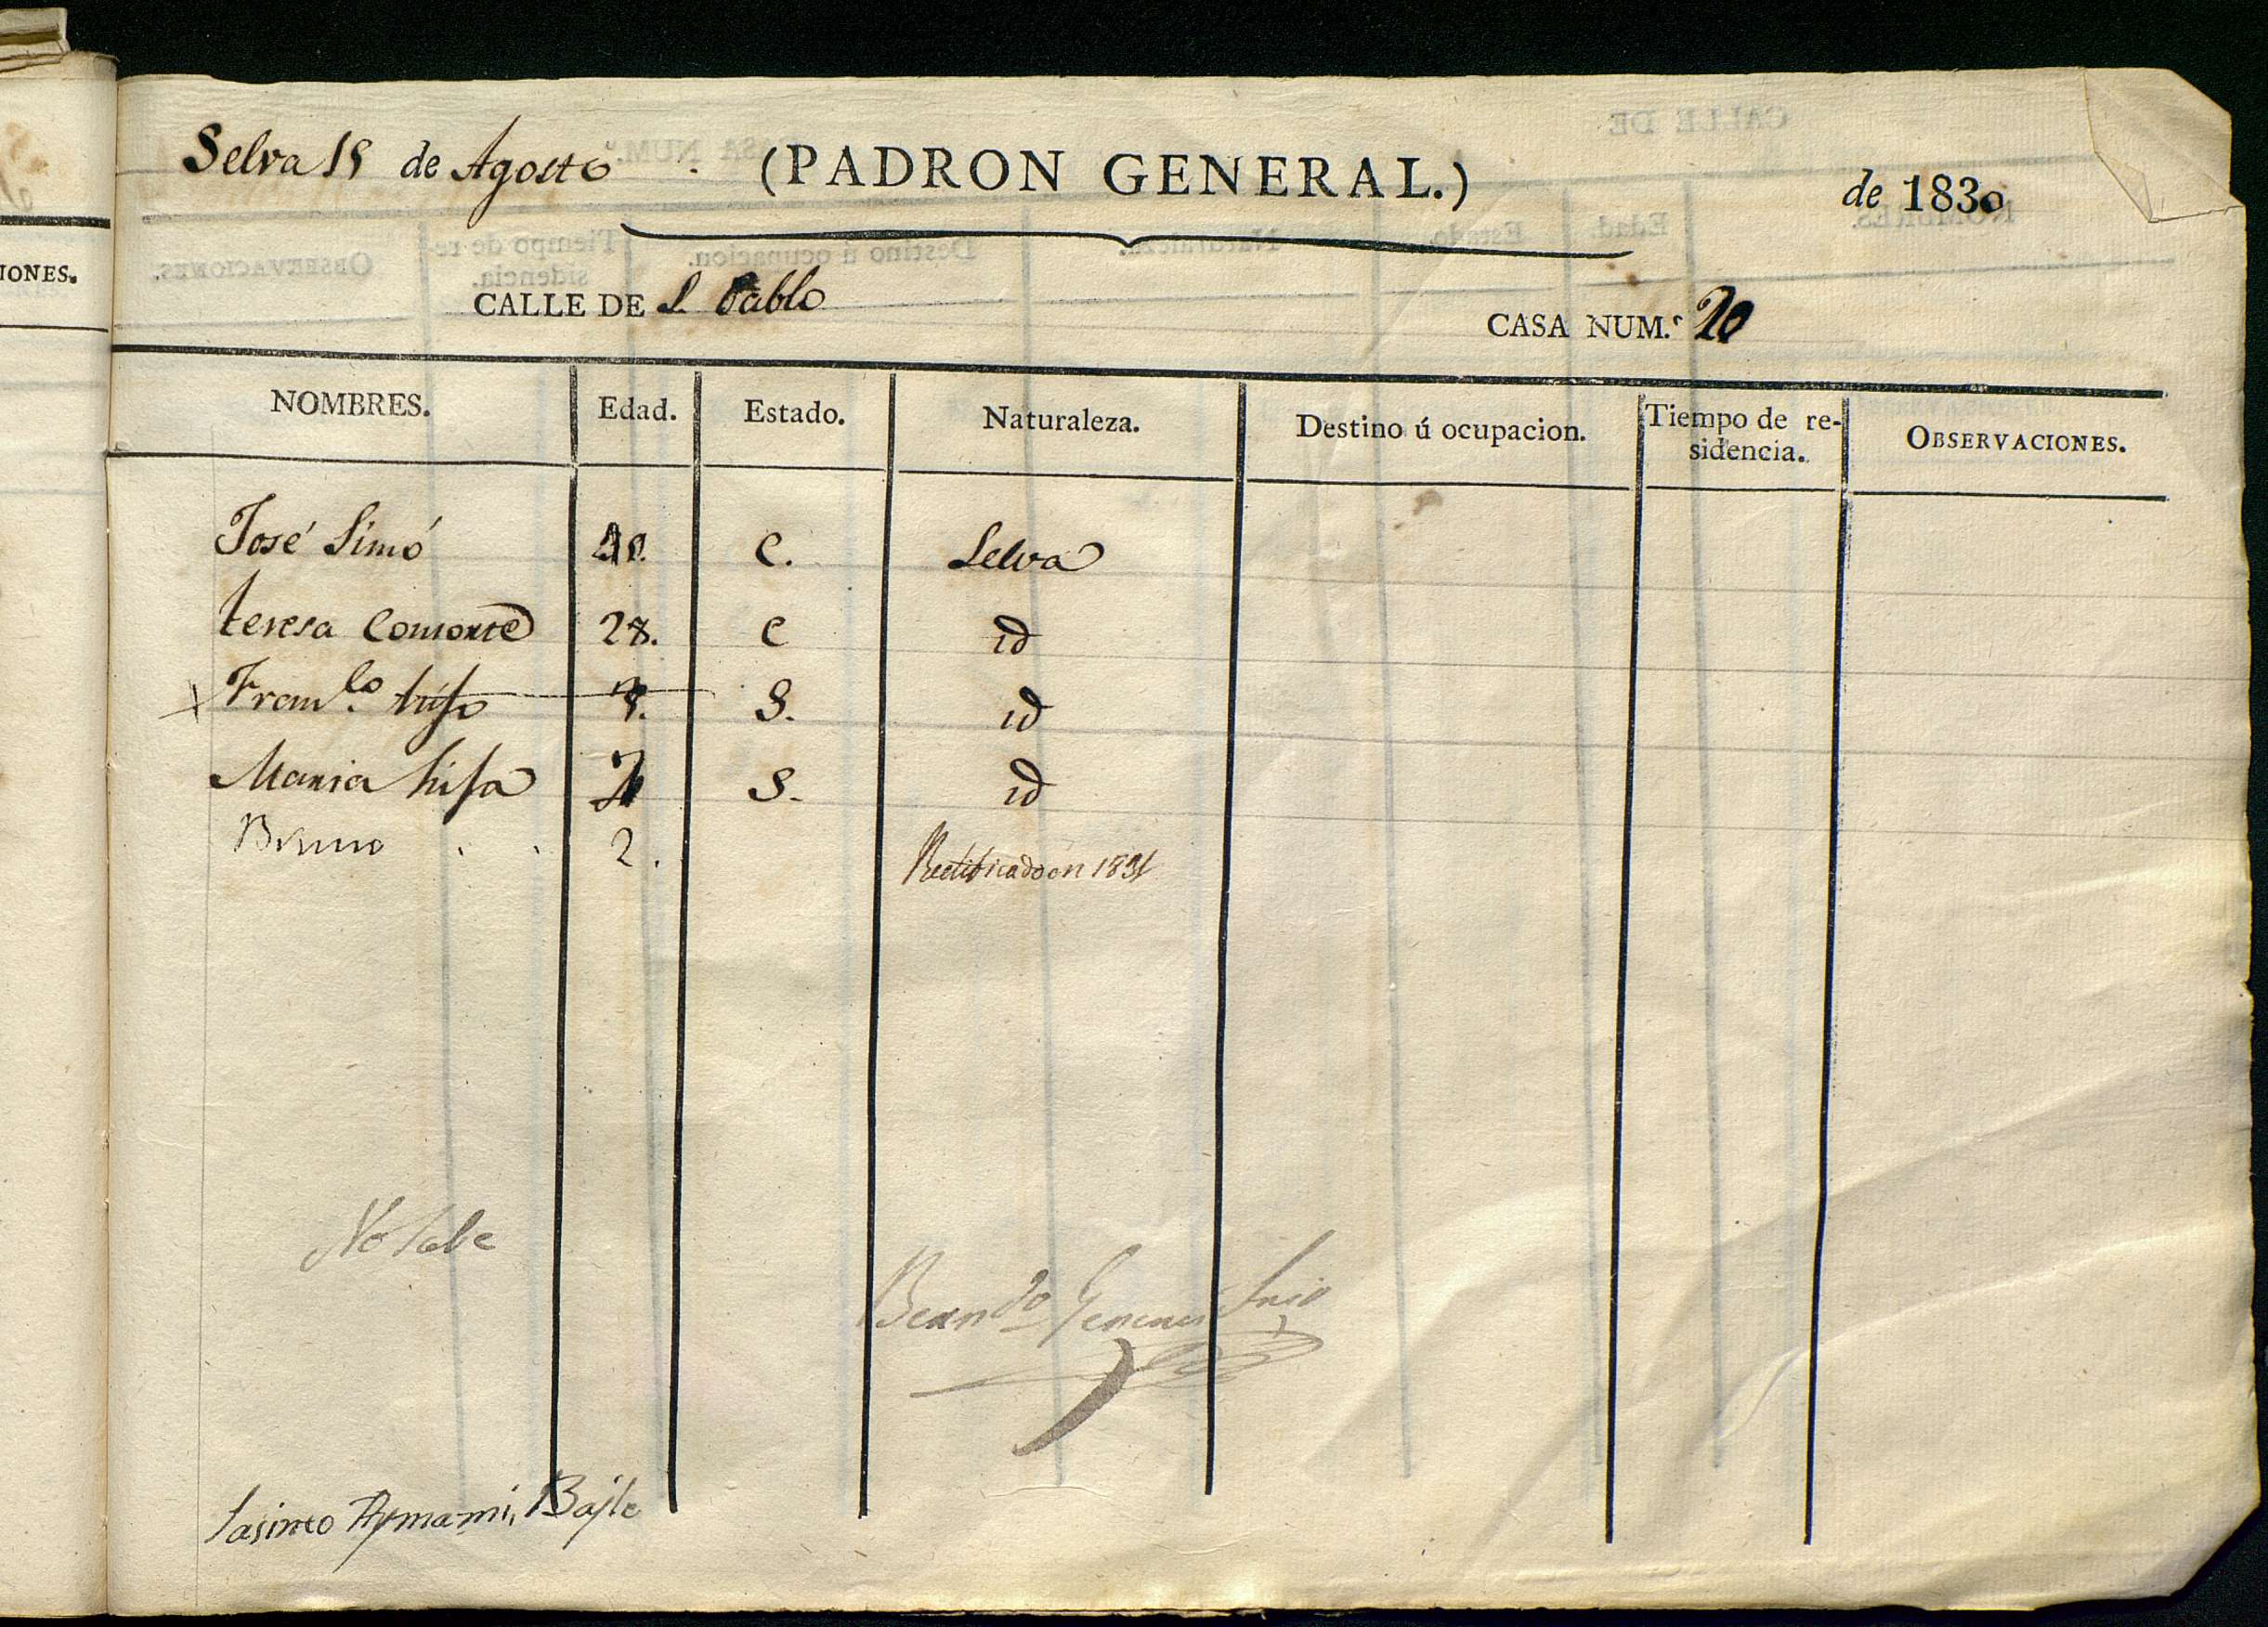 IONES.
Selva 15 de Agosto (PADRON GENERAL.) de 1830
CALLE DE S. Pablo CASA NUM.º 20
NOMBRES. Edad. Estado. Naturaleza. Destino ú ocupacion. Tiempo de residencia. OBSERVACIONES.
José Simó C. Selva
teresa Consorte 28. C id
Fran.co hijo S. id
Maria hija S. id
Bruno . . 2.
Rectificado en 1831
No sabe
Bern.do Srio
Jasinto Aymami, Bayle